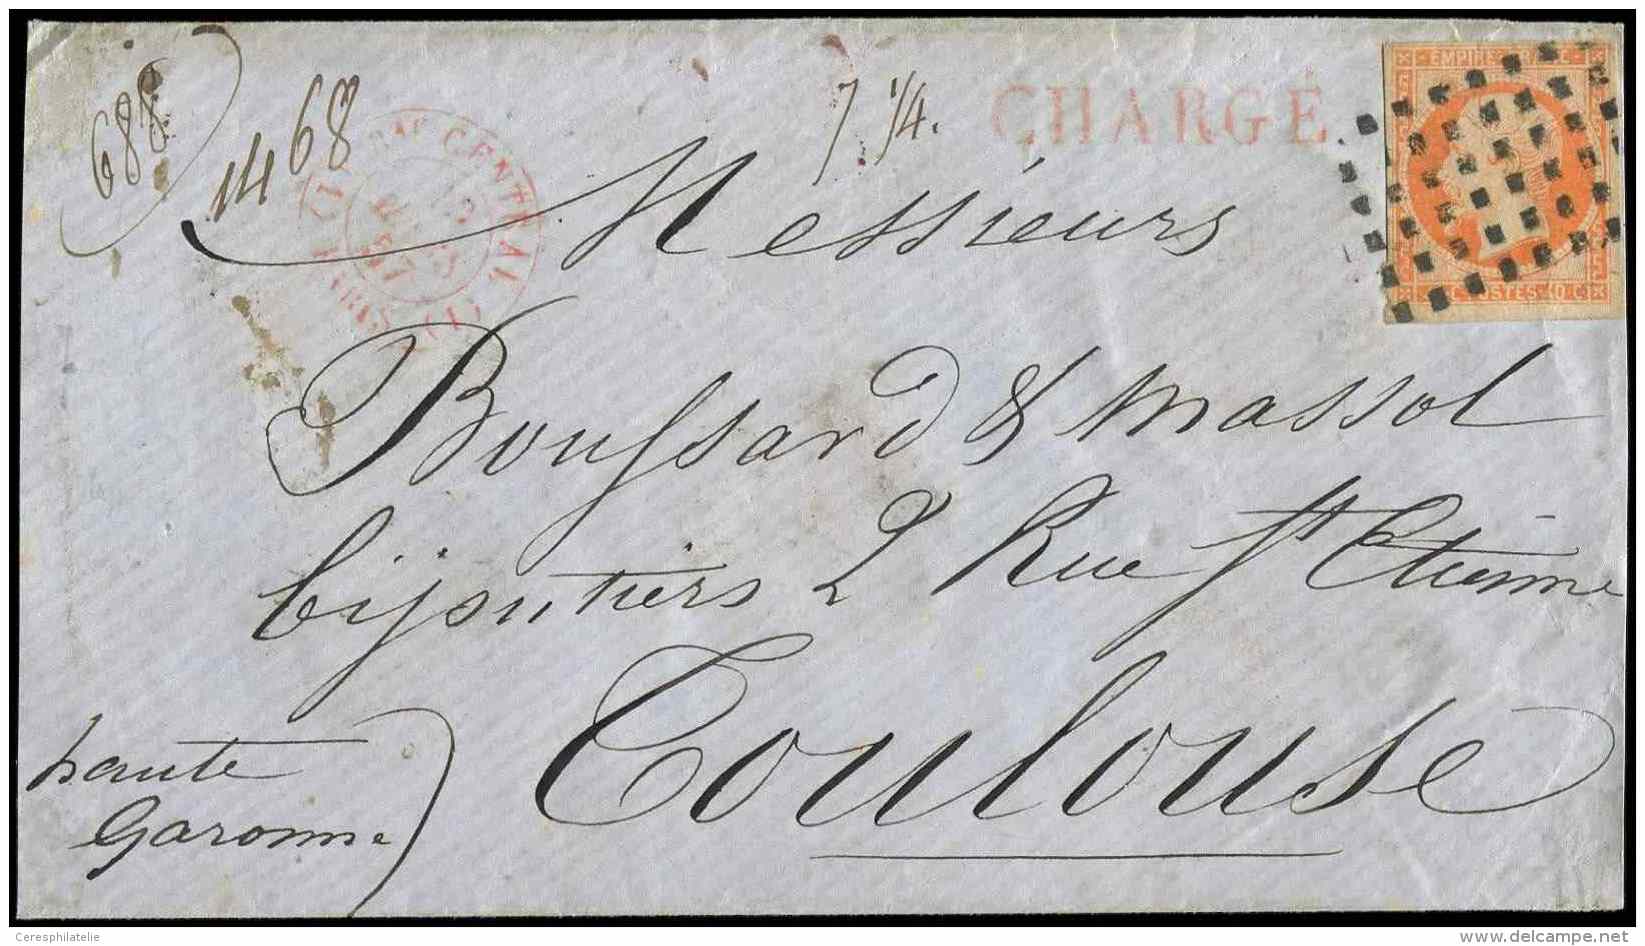 688
1468
7 1/4.
CHARGE
EMPIRE FRANC
POSTES 40 C
CENTRAL
PARIS (1)
Messieurs
Boussard & Massol
bijoutiers 2 Rue St Etienne
Toulouse
haute
Garonne
Ceresphilatelie
delcampe.net